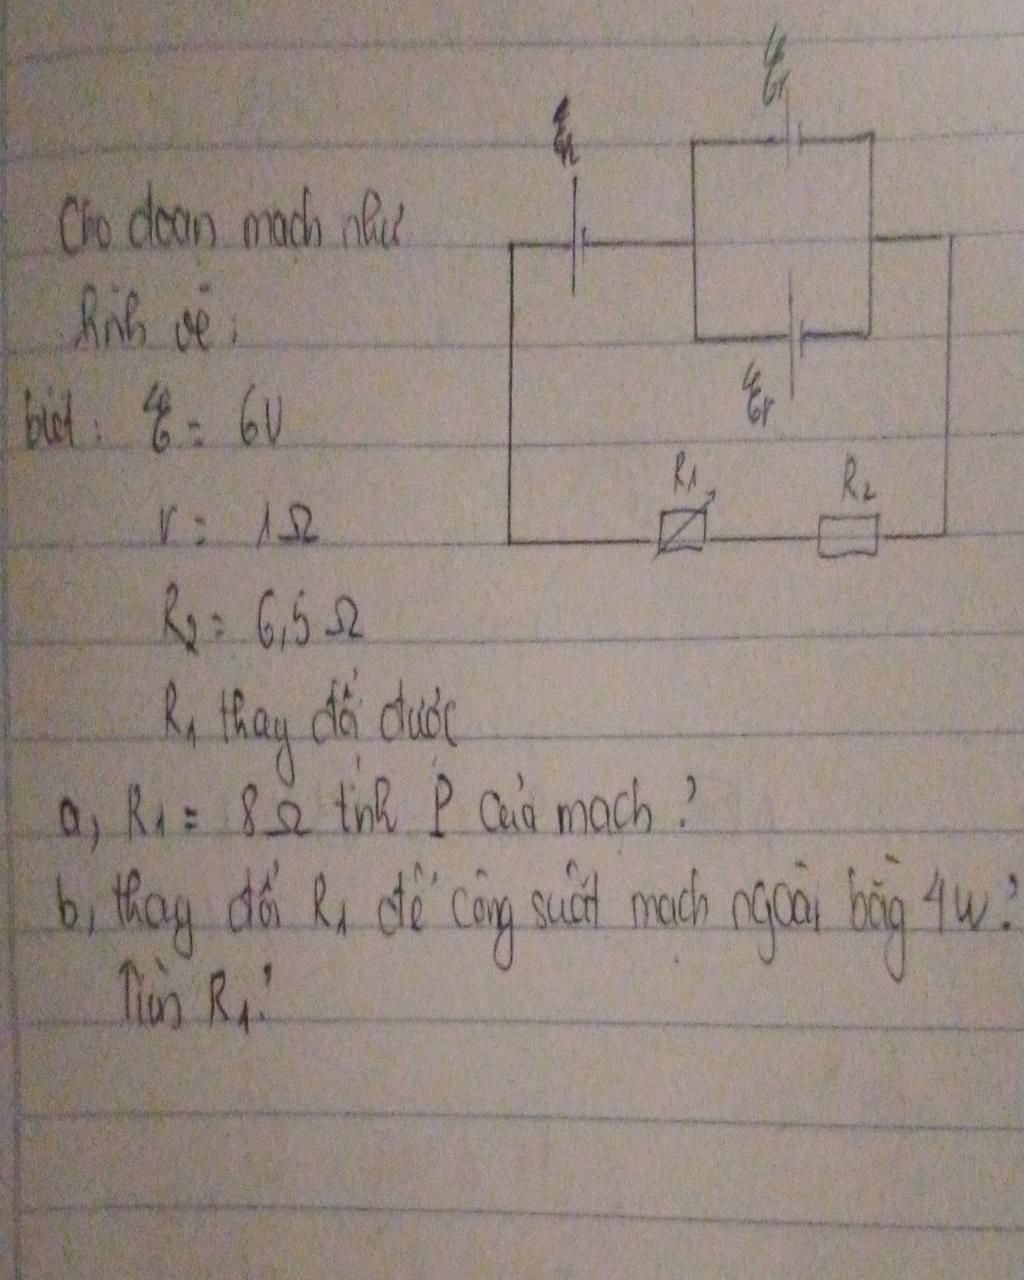 ξr
ξr
Cho đoạn mạch như
hình vẽ:
ξr
biết: ξ = 6V
R1
R2
r = 1Ω
R2 = 6,5 Ω
R1 thay đổi được
a, R1 = 8Ω tính P của mạch?
b, thay đổi R1 để công suất mạch ngoài bằng 4w?
Tìm R1?